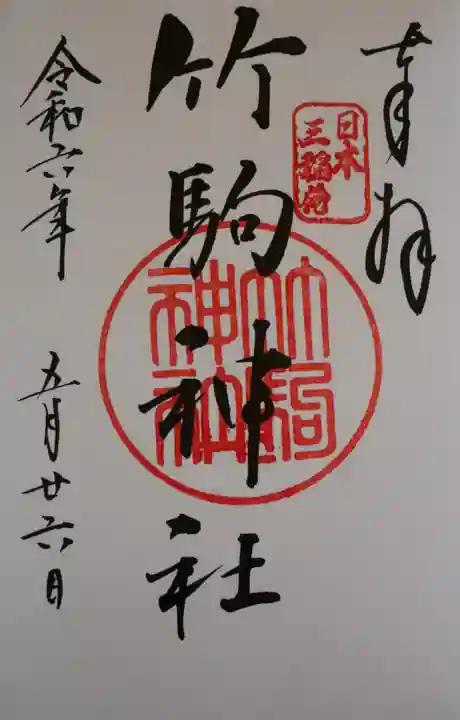 奉拝
日本
三稲荷
竹駒神社
竹駒
神社
令和六年 五月廿六日